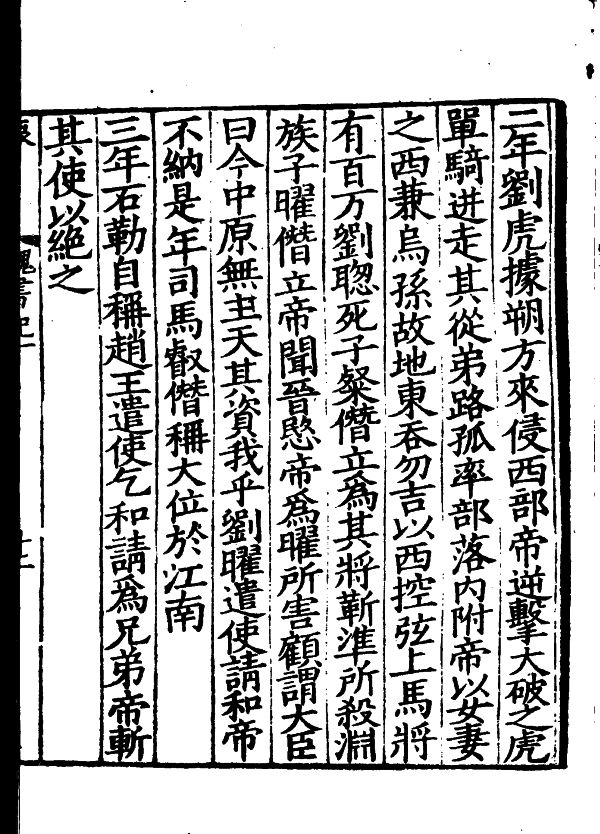 二年劉虎據朔方來侵西部帝逆擊大破之虎
單騎迸走其從弟路孤率部落內附帝以女妻
之西兼烏孫故地東吞勿吉以西控弦上馬將
有百万劉聦死子粲僭立爲其將靳準所殺淵
族子曜僭立帝聞晉愍帝爲曜所害顧謂大臣
曰今中原無主天其資我乎劉曜遣使請和帝
不納是年司馬叡僭稱大位於江南
三年石勒自稱趙王遣使乞和請爲兄弟帝斬
其使以絶之
魏書紀一